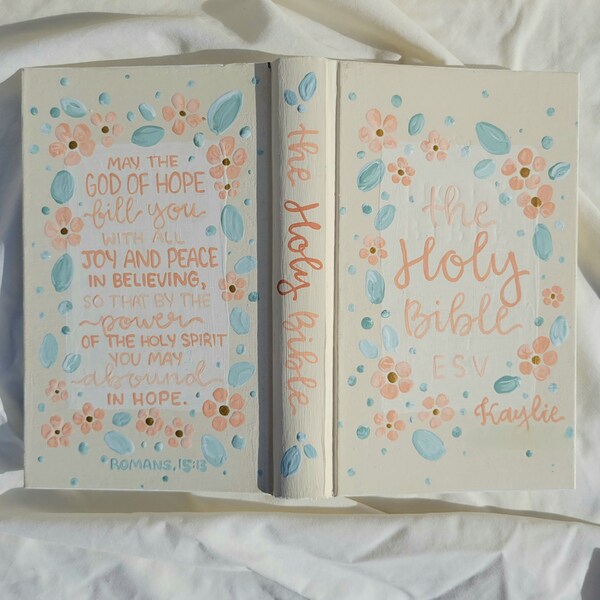 MAY THE
GOD OF HOPE
fill you
WITH ALL
JOY AND PEACE
IN BELIEVING,
SO THAT BY THE
power
OF THE HOLY SPIRIT
YOU MAY
abound
IN HOPE.
ROMANS, 15:13
the Holy Bible
the
Holy
Bible
ESV
Kaylie